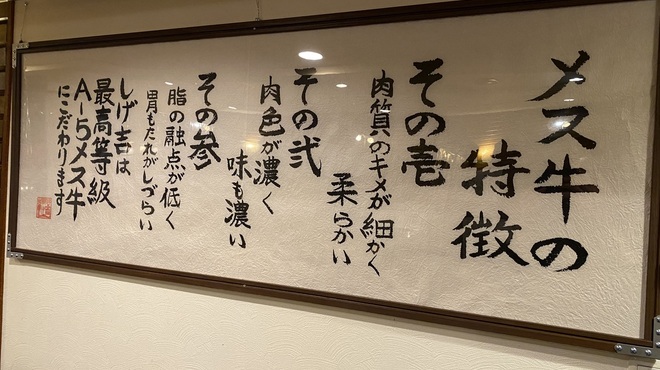 メス牛の
特徴
その壱
肉質のキメが細かく
柔らかい
その弐
肉色が濃く
味も濃い
その参
脂の融点が低く
胃もたれがしづらい
しげ吉は
最高等級
A-5メス牛
にこだわります